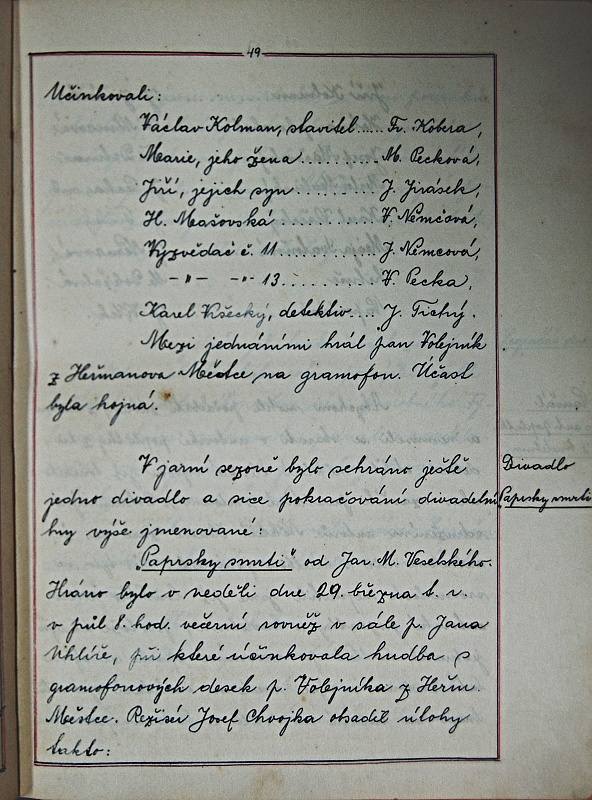 49
Účinkovali:
Václav Kolman, stavitel..... Fr. Kobera,
Marie, jeho žena .......... M. Pecková,
Jiří, jejich syn ........... J. Jirásek,
H. Mašovská ............. V. Němcová,
Vyzvědač č. 11 ............ J. Němcová,
-"- -"- 13 ........... V. Pecka,
Karel Kšecký, detektiv.... J. Tichý.
Mezi jednáními hrál pan Volejník
z Heřmanova Městce na gramofon. Účast
byla hojná.
V jarní sezoně bylo sehráno ještě
Divadlo
jedno divadlo a sice pokračování divadelní
Paprsky smrti
hry výše jmenované:
„Paprsky smrti" od Jar. M. Veselského.
Hráno bylo v neděli dne 29. března t. r.
v půl 8. hod. večerní rovněž v sále p. Jana
Uhlíře, při které účinkovala hudba s
gramofonových desek p. Volejníka z Heřm.
Městce. Režisér Josef Chvojka obsadil úlohy
takto: